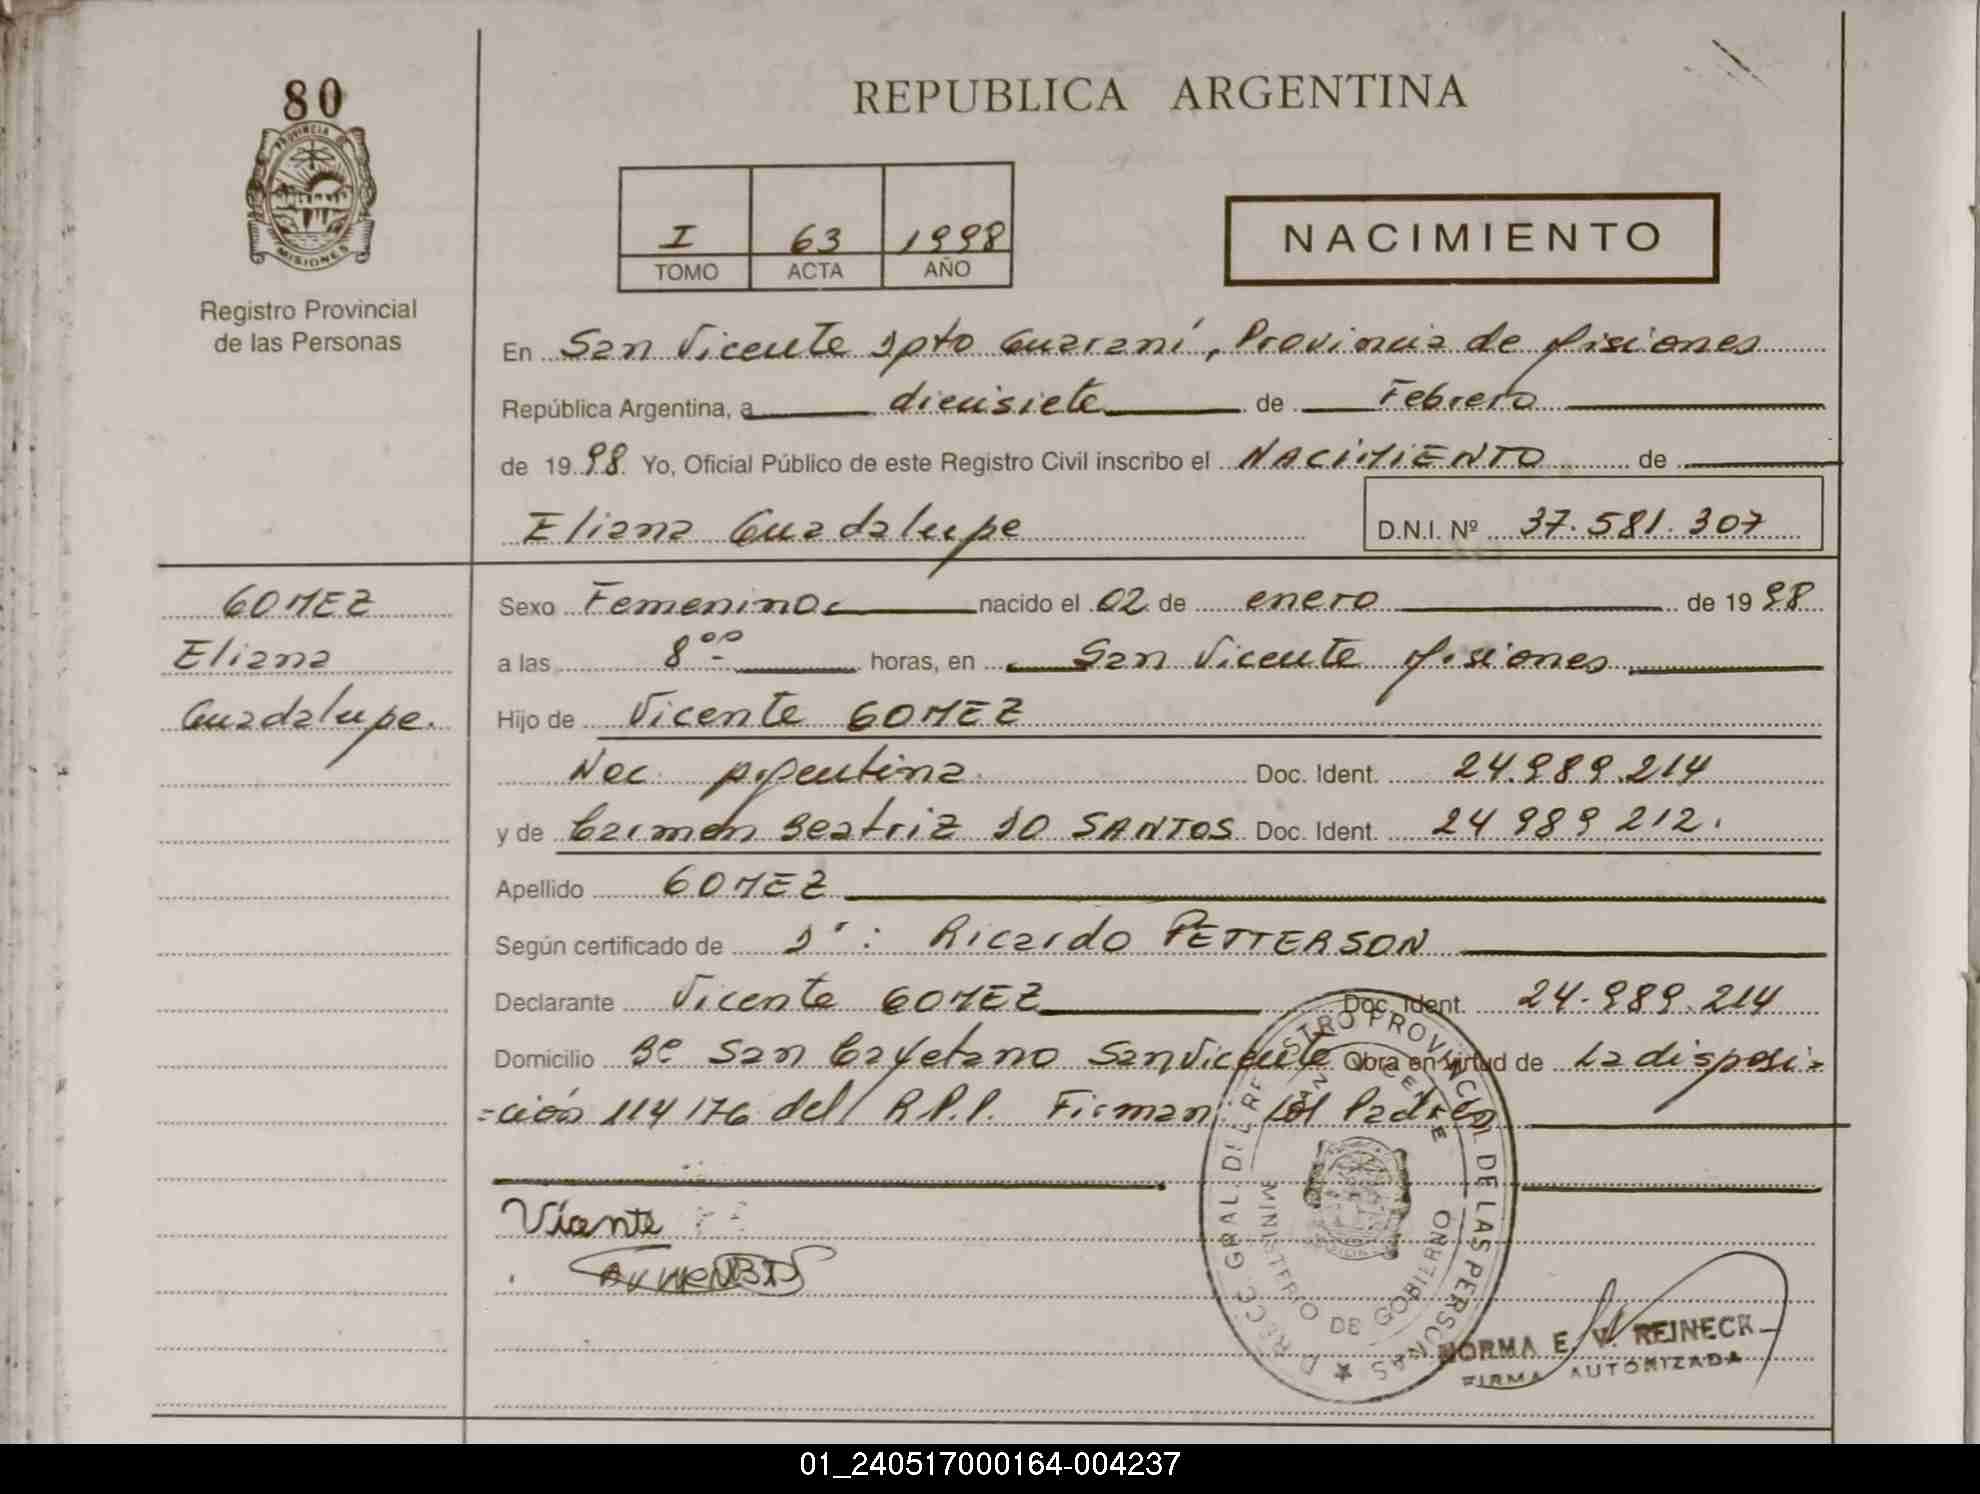 80
PROVINCIA DE
MISIONES
Registro Provincial
de las Personas
REPUBLICA ARGENTINA
I 63 1998
TOMO ACTA AÑO
NACIMIENTO
En San Vicente Dpto Guaraní, Provincia de Misiones
República Argentina, a diecisiete de Febrero
de 1998 Yo, Oficial Público de este Registro Civil inscribo el NACIMIENTO de
Eliana Guadalupe D.N.I. Nº 37.581.307
GOMEZ
Eliana
Guadalupe.
Sexo Femenino nacido el 02 de enero de 1998
a las 8⁰⁰ horas, en San Vicente Misiones
Hijo de Vicente GOMEZ
Nac. Argentina. Doc. Ident. 24.989.214
y de Carmen Beatriz DO SANTOS Doc. Ident. 24 989 212.
Apellido GOMEZ
Según certificado de Dr: Ricardo PETTERSON
Declarante Vicente GOMEZ Doc. Ident. 24.989.214
Domicilio Bº San Cayetano San Vicente Obra en virtud de La disposi=
=ción 114/76 del R.P.P. Firman: Los Padres
Vicente
DIRECC. GRAL. DEL REGISTRO PROVINCIAL DE LAS PERSONAS
SAN VICENTE
MINISTERIO DE GOBIERNO
NORMA E. V. REINECK
FIRMA AUTORIZADA
01_240517000164-004237